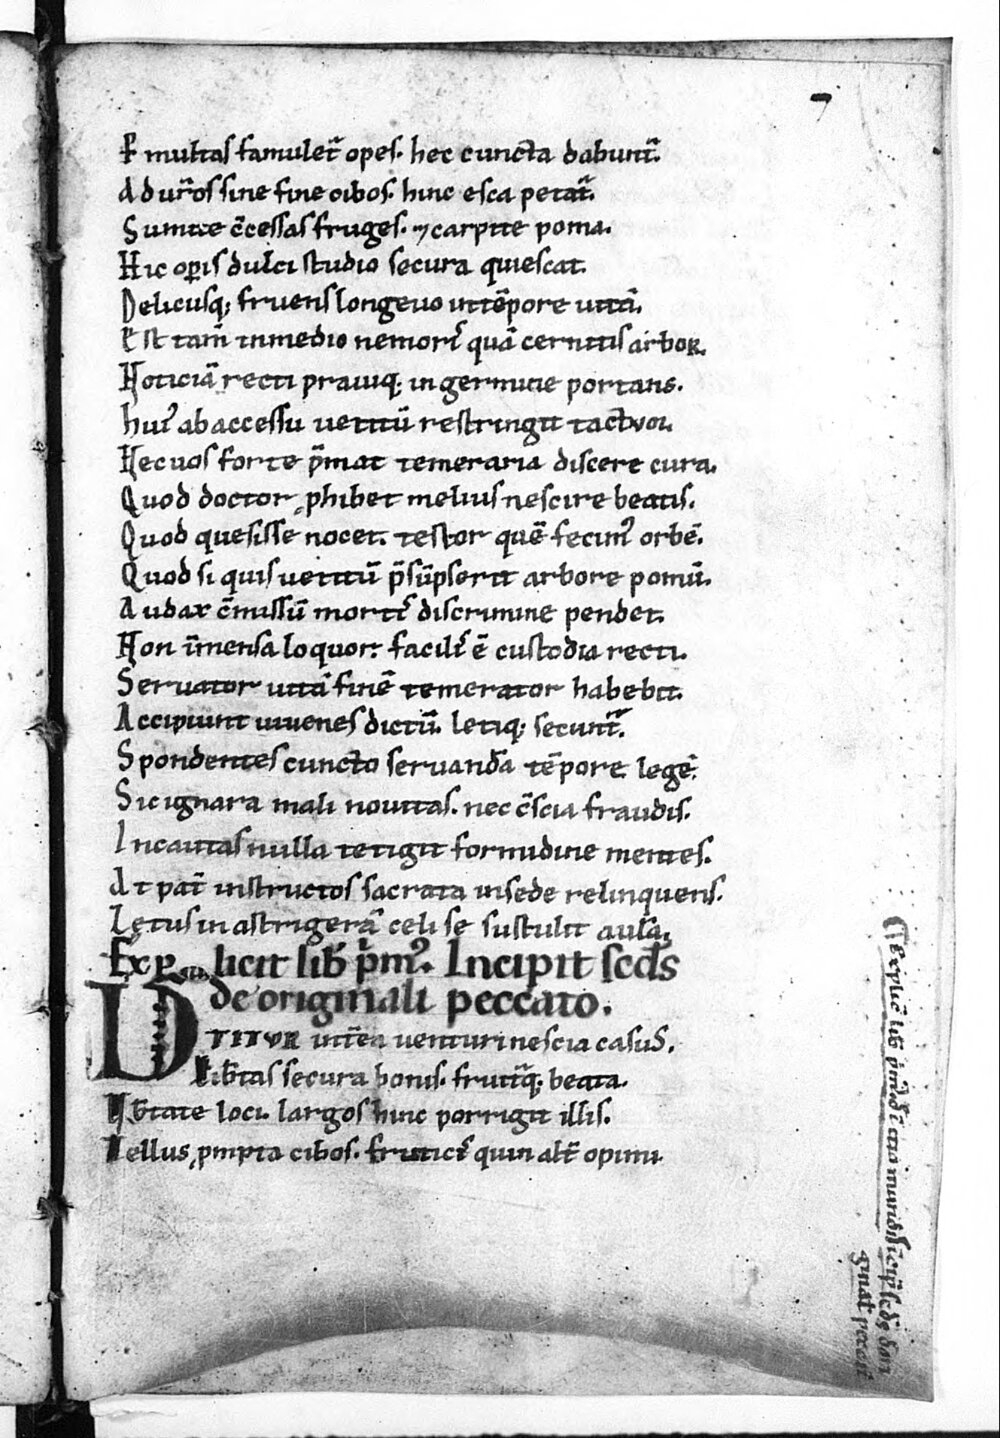 7
Et multas famulet̃ opes. hec cuncta dabunt̃.
Ad ur̃os sine fine cibos. hinc esca petat̃.
Sumite c̃cessas fruges. ⁊ carpite poma.
Hic oꝑis dulci studio secura quiescat.
Deliciisq; fruens longeuo in tẽpore uitã.
Est tam̃ in medio nemoris quã cernitis arbor.
Noticiã recti prauiq; in germine portans.
hui᷒ ab accessu uetitũ restringit tactvm.
Nec uos forte p̃mat temeraria discere cura.
Quod doctor ꝓhibet melius nescire beatis.
Quod quesisse nocet. testor quẽ fecim᷒ orbẽ.
Quod si quis uetitũ p̃sũpserit arbore pomũ.
Audax c̃missũ mortis discrimine pendet.
Non ĩmensa loquor. facilis ẽ custodia recti.
Seruator uitã finẽ temerator habebit.
Accipiunt iuuenes dictũ. letiq; secunt̃.
Spondentes cuncto seruandã tẽpore legẽ.
Sic ignara mali nouitas. nec c̃scia fraudis.
Incautas nulla tetigit formidine mentes.
At pat̃ instructos sacrata in sede relinquens.
Letus in astrigerã celi se sustulit aula.
Explicit lib̃ p̃m᷒. Incipit sc̃ds
de originali peccato.
VTITVR intẽa uenturi nescia casus.
Lib̃tas secura bonis. fruitq̃; beata.
Vb̃tate loci. largos hinc porrigit illis.
Tellus ꝓmpta cibos. frutic̃ quin alt̃ opimi